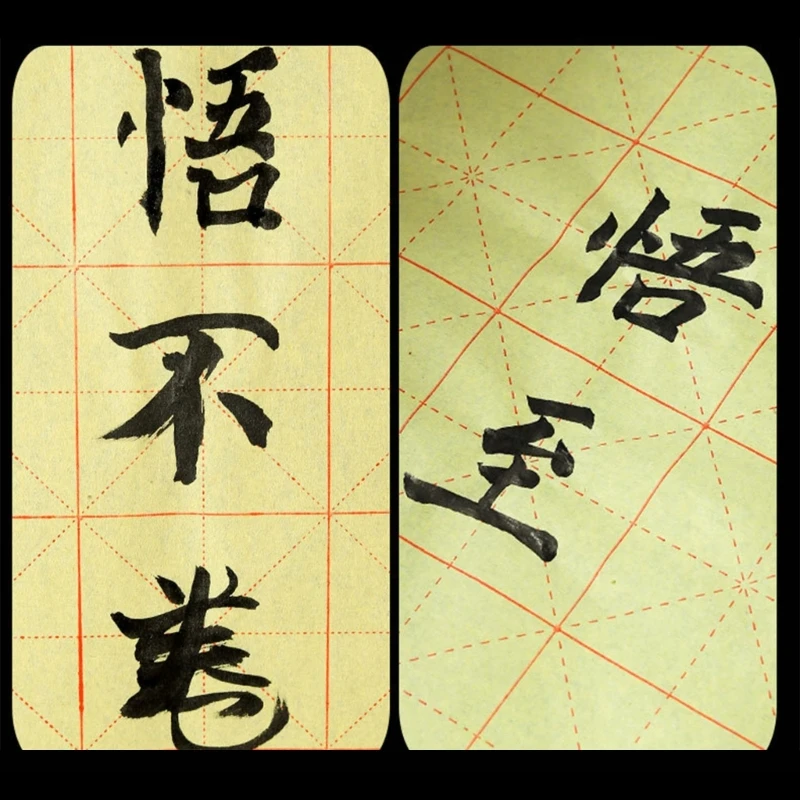 悟不
悟至